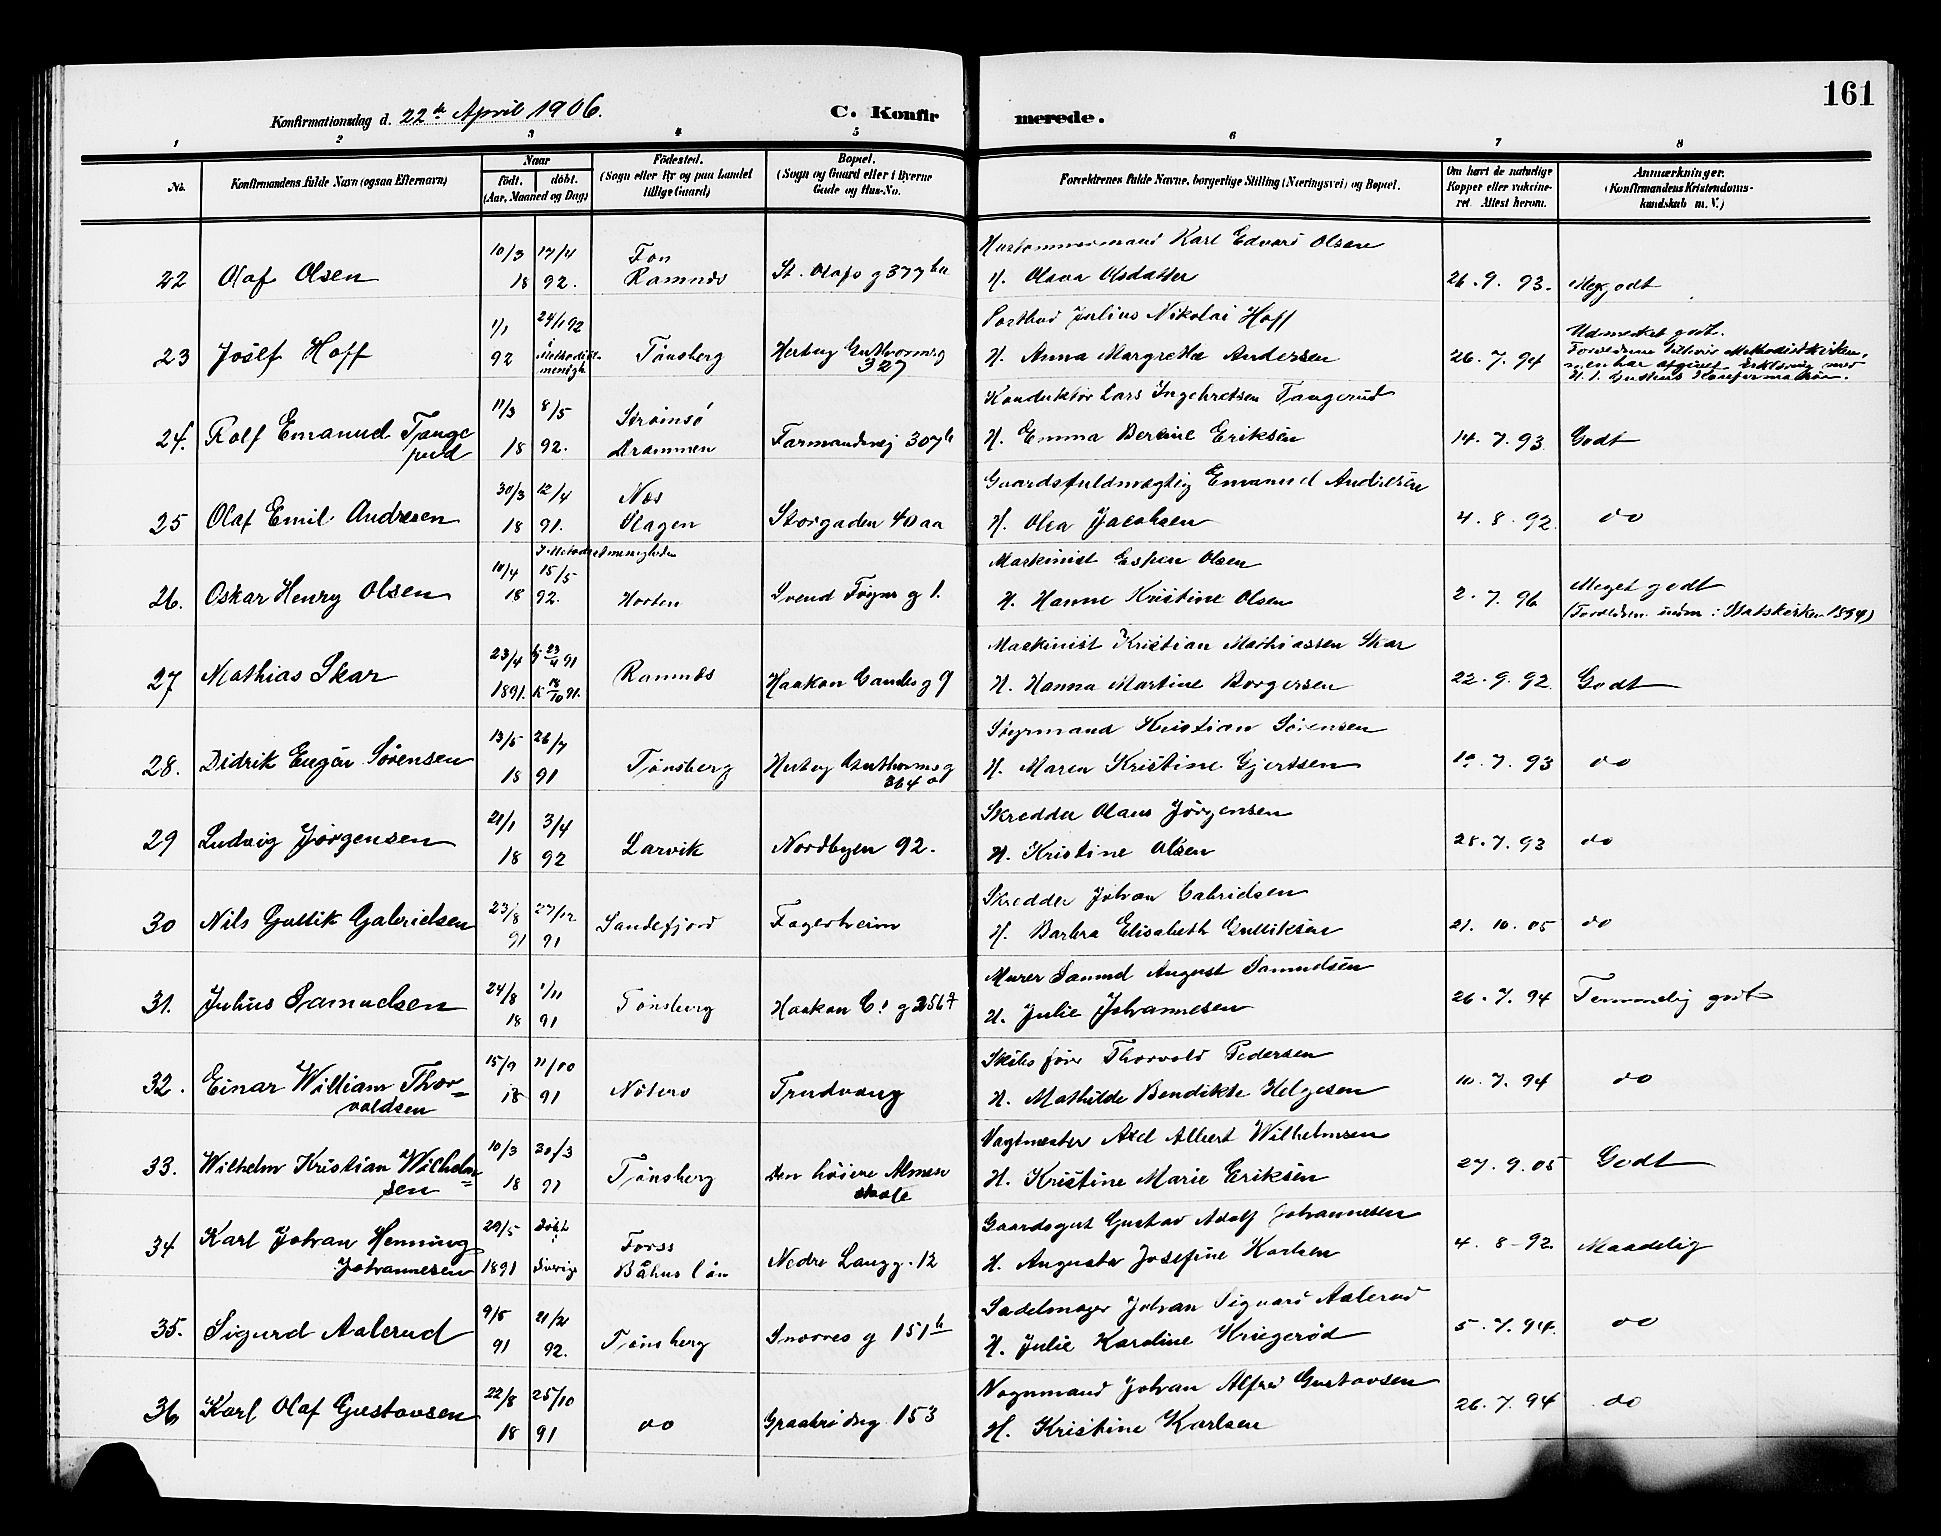 161
Konfirmationsdag d. 22de April 1906.
C. Konfirmerede.
1 2 3 4 5 6 7 8
No.
Konfirmandens fulde Navn (ogsaa Efternavn)
Naar
født. døbt.
(Aar, Maaned og Dag)
Fødested.
(Sogn eller By og paa Landet
tillige Gaard)
Bopæl.
(Sogn og Gaard eller i Byerne
Gade og Hus-No.
Forældrenes fulde Navne, borgerlige Stilling (Næringsvei) og Bopæl.
Om havt de naturlige
Kopper eller vaksine-
ret. Attest herom.
Anmærkninger.
(Konfirmandens Kristendoms-
kundskab m. V.)
10/3 17/4 Fon Karl Edvard Olsen
22 Olaf Olsen 18 92. Ramnes St. Olafs g 377 H. Olava Olsdatter 26.9.93. Meg. godt
1/1 24/1 92 Postbud Julius Nikolai Hoff
23 Josef Hoff 92 Methodist menigh Tønsberg Hertug Guthormsg 327 H. Anna Margrethe Andersen 26.7.94
Udmerket godt.
Forældrene tilhører Methodistkirken,
men har afgivet Erklæring med
H. t. Gustavs Konfirmation.
11/3 8/5 Strømsø Konduktør Lars Ingebretsen Tangerud
24. Rolf Emanuel Tange 18 92. Drammen Farmandsvej 307b H. Emma Berline Eriksen 14.7.93 Godt
rud
30/3 12/4 Næs Gaardsfuldmægtig Emanuel Andresen
25 Olaf Emil Andresen 18 91. Slagen Storgaden 40aa H. Olea Jacobsen 4.8.92. do
I Metodistmenigheden
10/4 15/5 Maskinist Espen Olsen
26. Oskar Henry Olsen 18 92. Horten Svend Foyns g 1. H. Hanne Kristine Olsen 2.7.96 Meget godt
(Forældrene indm. i Statskirken 1894)
23/4 23/4 91 Maskinist Kristian Mathiassen Skar
27 Mathias Skar 1891. K 18/10 91. Ramnes Haakon Gamles g 9 H. Hanna Martine Borgersen 22.9.92. Godt
13/5 26/7 Styrmand Kristian Sørensen
28. Didrik Eugen Sørensen 18 91 Tønsberg Hertug Guthormsg 364 a H. Maren Kristine Gjertsen 10.7.93 do
21/1 3/4 Skredder Olaus Jørgensen
29 Ludvig Jørgensen 18 92 Larvik Nordbyen 92. H. Kristine Olsen 28.7.93 do
23/8 27/12 Skredder Johan Gabrielsen
30 Nils Gullik Gabrielsen 91 91 Sandefjord Fagerheim H. Barbra Elisabeth Gulliksen 21.10.05 do
24/8 1/11 Murer Samuel August Samuelsen
31. Julius Samuelsen 18 91 Tønsberg Haakon G. g 256 H. Julie Johannesen 26.7.94 Temmelig godt
15/9 11/10 Skibsfører Thorvald Pedersen
32. Einar William Thor= 18 91 Nøterø Trudvang H. Mathilde Bendikte Helgesen 10.7.94 do
valdsen
10/3 30/3 Vagtmester Axel Albert Wilhelmsen
33. Wilhelm Kristian Wilhelm= 18 91 Tønsberg Den høiere Almen skole H. Kristine Marie Eriksen 27.9.05 Godt
sen
29/5 Døbt i Forss Gaardsgut Gustav Adolf Johannesen
34 Karl Johan Henning 1891 Sverige Båhus län Nedre Langg. 12 H. Augusta Josefine Karlsen 4.8-92. Maadelig
Johannesen
9/5 21/2 Sadelmager Johan Sigvard Aalerud
35. Sigurd Aalerud 91 92. Tønsberg Snorres g 151b H. Julie Karoline Kriegerød 5.7.94. do
22/8 25/10 Vognmand Johan Alfred Gustavsen
36 Karl Olaf Gustavsen 18 91 do Graabrødreg. 153 H. Kristine Karlsen 26.7.94 do